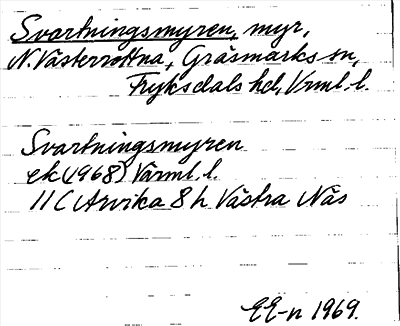 Svartningsmyren, myr,
N. Västerrottna, Gräsmarks sn,
Fryksdals hd, Vrml. l.
Svartningsmyren
ek (1968) Värml. l.
11 C Arvika 8 h Västra Näs
EE-n 1969.